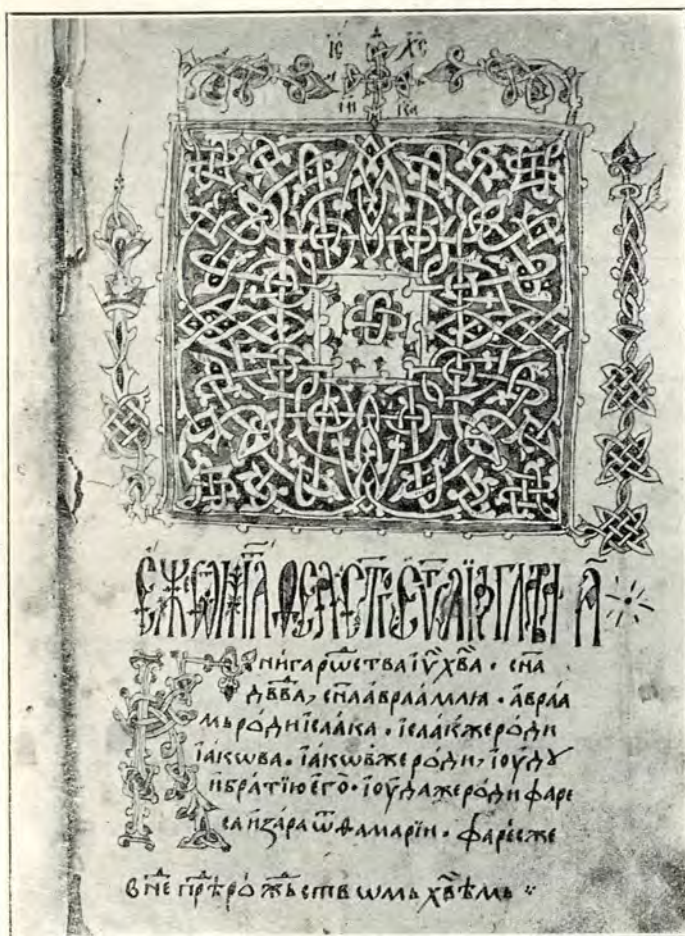 І҃С Х҃С
НИ КА
Кни́га рѡⷤства і҆у҃ хв҃а · сн҃а
дв҃да, сн҃а а҆враа́млѧ · а҆враа́
мь роди і҆саа́ка · і҆саа́кже роди
і҆а́кѡва · і҆а́кѡвже роди, і҆оу́дꙋ
и҆ бра́тїю е҆го̀ · і҆оу́да же роди фаре
са и҆ за́ра ѿ ѳама́рїи · фаре́сже
в нⷣе прⷣѣ рож̾ьствѡмь хв҃ѣмь ⁘